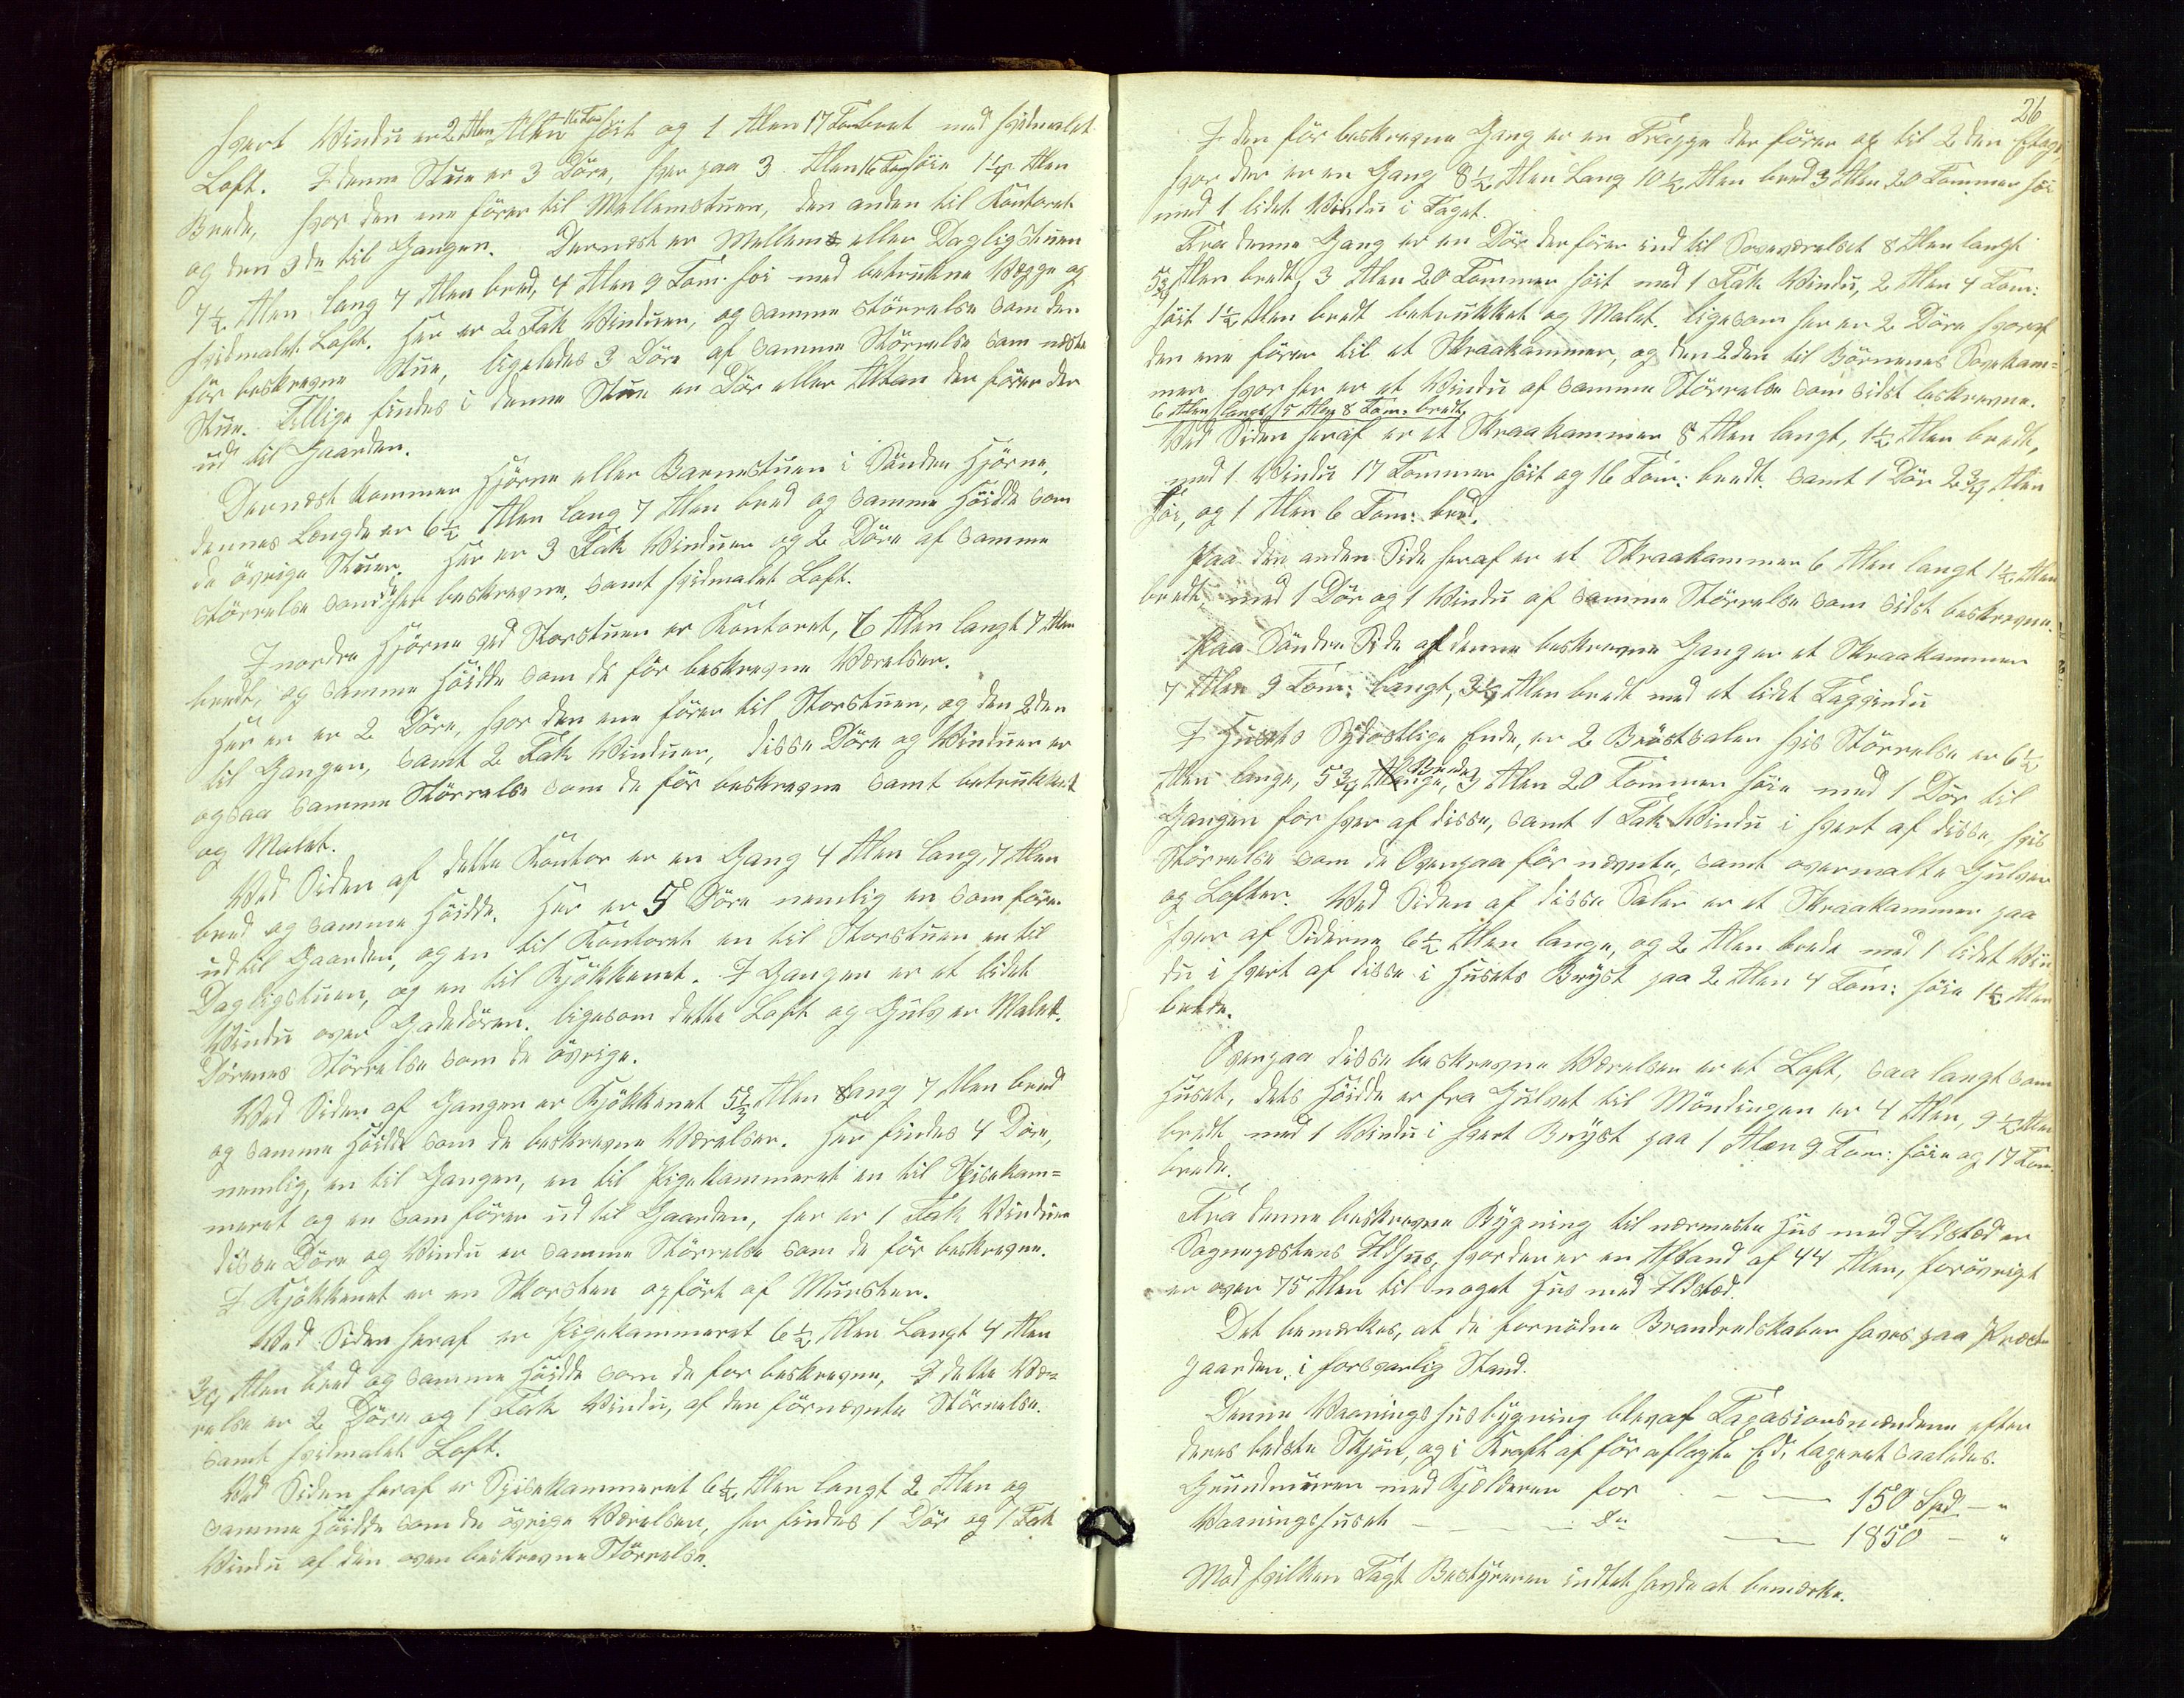 hvert Vindu er 2 Alen 16 Tom høit og 1 Alen 17 Tom bret med hvidmalet
Loft. I denne Stue er 3 Døre, hver paa 3 Alen 16 Tom høie 1 1/4 Alen
Brede, hvor den ene fører til Mellemstuen, den anden til Kontoret
og den 3die til Gangen. Dernæst er Mellem eller Dagligstuen
7 1/2 Alen lang 7 Alen bred, 4 Alen 9 Tom: høi med betrukne Vægge og
hvidmalet Loft. Her er 2 Fak Vinduer, og samme størrelse som den
før beskrevne Stue, ligeledes 3 Døre af samme Størrelse som næste
Stue. Tillige findes i denne Stue en Dør eller Altan der fører der
ud til Gaarden.
Dernæst kommer Hjørne eller Barnestuen i Søndre Hjørne,
dennes Længde er 6 1/2 Alen lang 7 Alen bred og samme Høidde som
de øvrige Stuer. Her er 3 Fak Vinduer og 2 Døre af samme
størrelse som de her beskrevne, samt hvidmalet Loft.
I nordre Hjørne ved Storstuen er Kontoret, 6 Alen langt 7 Alen
bredt, og samme Høidde som de før beskrevne Værelser.
Her er er 2 Døre, hvor den ene fører til Storstuen, og den 2den
til Gangen, samt 2 Fak Vinduer, disse Døre og Vinduer er
ogsaa samme Størrelse som de før beskrevne samt betrukket
og Malet.
Ved Siden af dette Kontor er en Gang 4 Alen lang, 7 Alen
bred og samme Høidde. Her er 5 Døre nemlig en som fører
ud til Gaarden, og en til Kontoret en til Storstuen en til
Dagligstuen, og en til Kjøkkenet. I Gangen er et lidet
Vindu over Gadedøren. ligesom dette Loft og Gulv er Malet.
Dørenes Størrelse som de øvrige.
Ved Siden af Gangen er Kjøkkenet 5 1/2 Alen lang 7 Alen bred
og samme Høidde som de beskrevne Værelser. Her findes 4 Døre,
nemlig, en til Gangen, en til Pigekammeret en til Spisekam=
meret og en som fører ud til Gaarden, her er 1 Fak Vinduer
disse Døre og Vindu er samme Størrelse som de før beskrevne.
I Kjøkkenet er en Skorsten opført af Mursten.
Ved Siden heraf er Pigekammeret 6 1/2 Alen Langt 4 Alen
3/4 Alen bred og samme Høidde som de for beskrevne, I dette Væ=
relse er 2 Døre og 1 Fak Vindu, af den førnævnte Størrelse.
samt hvidmalet Loft.
Ved Siden heraf er Spisekammeret 6 1/2 Alen langt 2 Alen og
samme Høidde som de øvrige Værelser, her findes 1 Dør og 1 Fak
Vindu af den oven beskrevne Størrelse.
26
I den før beskrevne Gang er en Trappe der fører op til 2den Etage,
hvor der er en Gang 8 1/2 Alen Lang 10 1/2 Alen bred 3 Alen 20 Tommer høi
med 1 lidet Vindu i Taget.
Fra denne Gang er en Dør der fører ind til Soveværelset 8 Alen langt
5 3/4 Alen bredt, 3 Alen 20 Tommer høit med 1 Fak Vindu, 2 Alen 4 Tom:
høit 1 1/2 Alen bredt betrukket og Malet. ligesom her er 2 Døre hvoraf
den ene fører til et Skraakammer, og den 2den til Børnenes Sovekam=
mer hvor her er et Vindu af samme Størrelse som sidst beskrevne.
6 Alen langt 5 Alen 8 Tom: bredt,
Ved Siden heraf er et Skraakammer 8 Alen langt, 1 1/2 Alen bredt,
med 1 Vindu 17 Tommer høit og 16 Tom: bredt. samt 1 Dør 2 3/4 Alen
høi, og 1 Alen 6 Tom: bred.
Paa den anden Side heraf er et Skraakammer 6 Alen langt 1 1/2 Alen
bredt, med 1 Dør og 1 Vindu af samme Størrelse som sidst beskrevne.
Paa Søndre Side af denne beskrevne Gang er et Skraakammer
7 Alen 9 Tom: langt, 3 1/4 Alen bredt med et lidet Tagvindu
I Husets Sydostlige Ende, er 2 Brøstsaler hvis Størrelse er 6 1/2
Alen lange, 5 3/4 Brede, 3 Alen 20 Tommer høie med 1 Dør til
Gangen for hver af disse, samt 1 Fak Vindu i hvert af disse, hvis
Størrelse som de Ovenpaa før nævnte, samt overmalte Gulver
og Lofter. Ved Siden af disse Saler er et Skraakammer paa
hver af Siderne 6 1/2 Alen lange, og 2 Alen brede med 1 lidet Vin
du i hvert af disse i Husets Bryst paa 2 Alen 4 Tom: høie 1 1/2 Alen
brede.
Ovenpaa disse beskrevne Værelser er et Loft, saa langt som
Huset, dets Høidde er fra Gulvet til Mønningen er 4 Alen, 9 1/2 Alen
bredt med 1 Vindu i hvert Bryst paa 1 Alen 9 Tom: høie og 17 Tom
brede.
Fra denne beskrevne Bygning til nærmeste Hus med Ildsted er
Sognepræstens Ildhus, hvor der er en Afstand af 44 Alen, forøvrigt
er over 75 Alen til noget Hus med Ildsted.
Det bemærkes, at de fornødne Brandredskaber haves paa Præste
gaarden, i forsvarlig Stand.
Denne Vaaningshusbygning blev af Taxasionsmændene efter
deres bedste Skjøn, og i Kraft af før aflagte Ed, taxeret saaledes.
Grundmuren med Kjælderen for - - 150 Spd - "
Vaaningshuset - - - do - - 1850 - "
Mod hvilken Taxt Bestyreren indtet havde at bemærke.